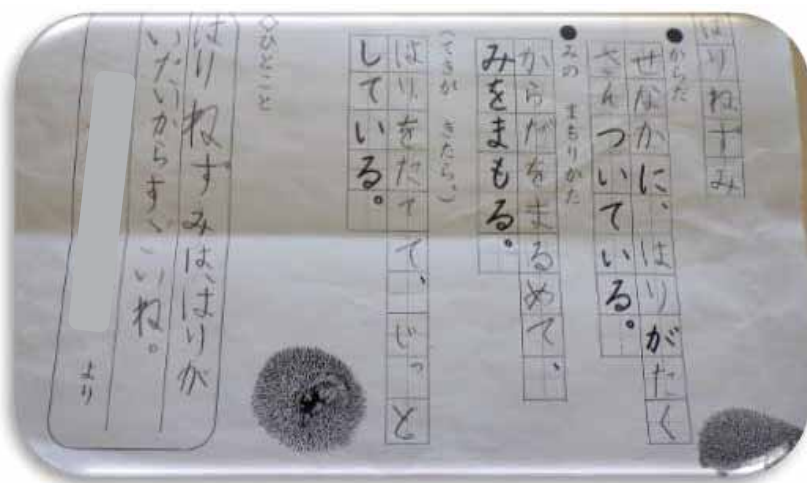 はりねずみ
●からだ
せなかに、はりがたく
さんついている。
●みの まもりかた
からだをまるめて、
みをまもる。
(てきが きたら、)
はりをたてて、じっと
している。
◇ひとこと
はりねずみは、はりが
いたいからすごいね。
より